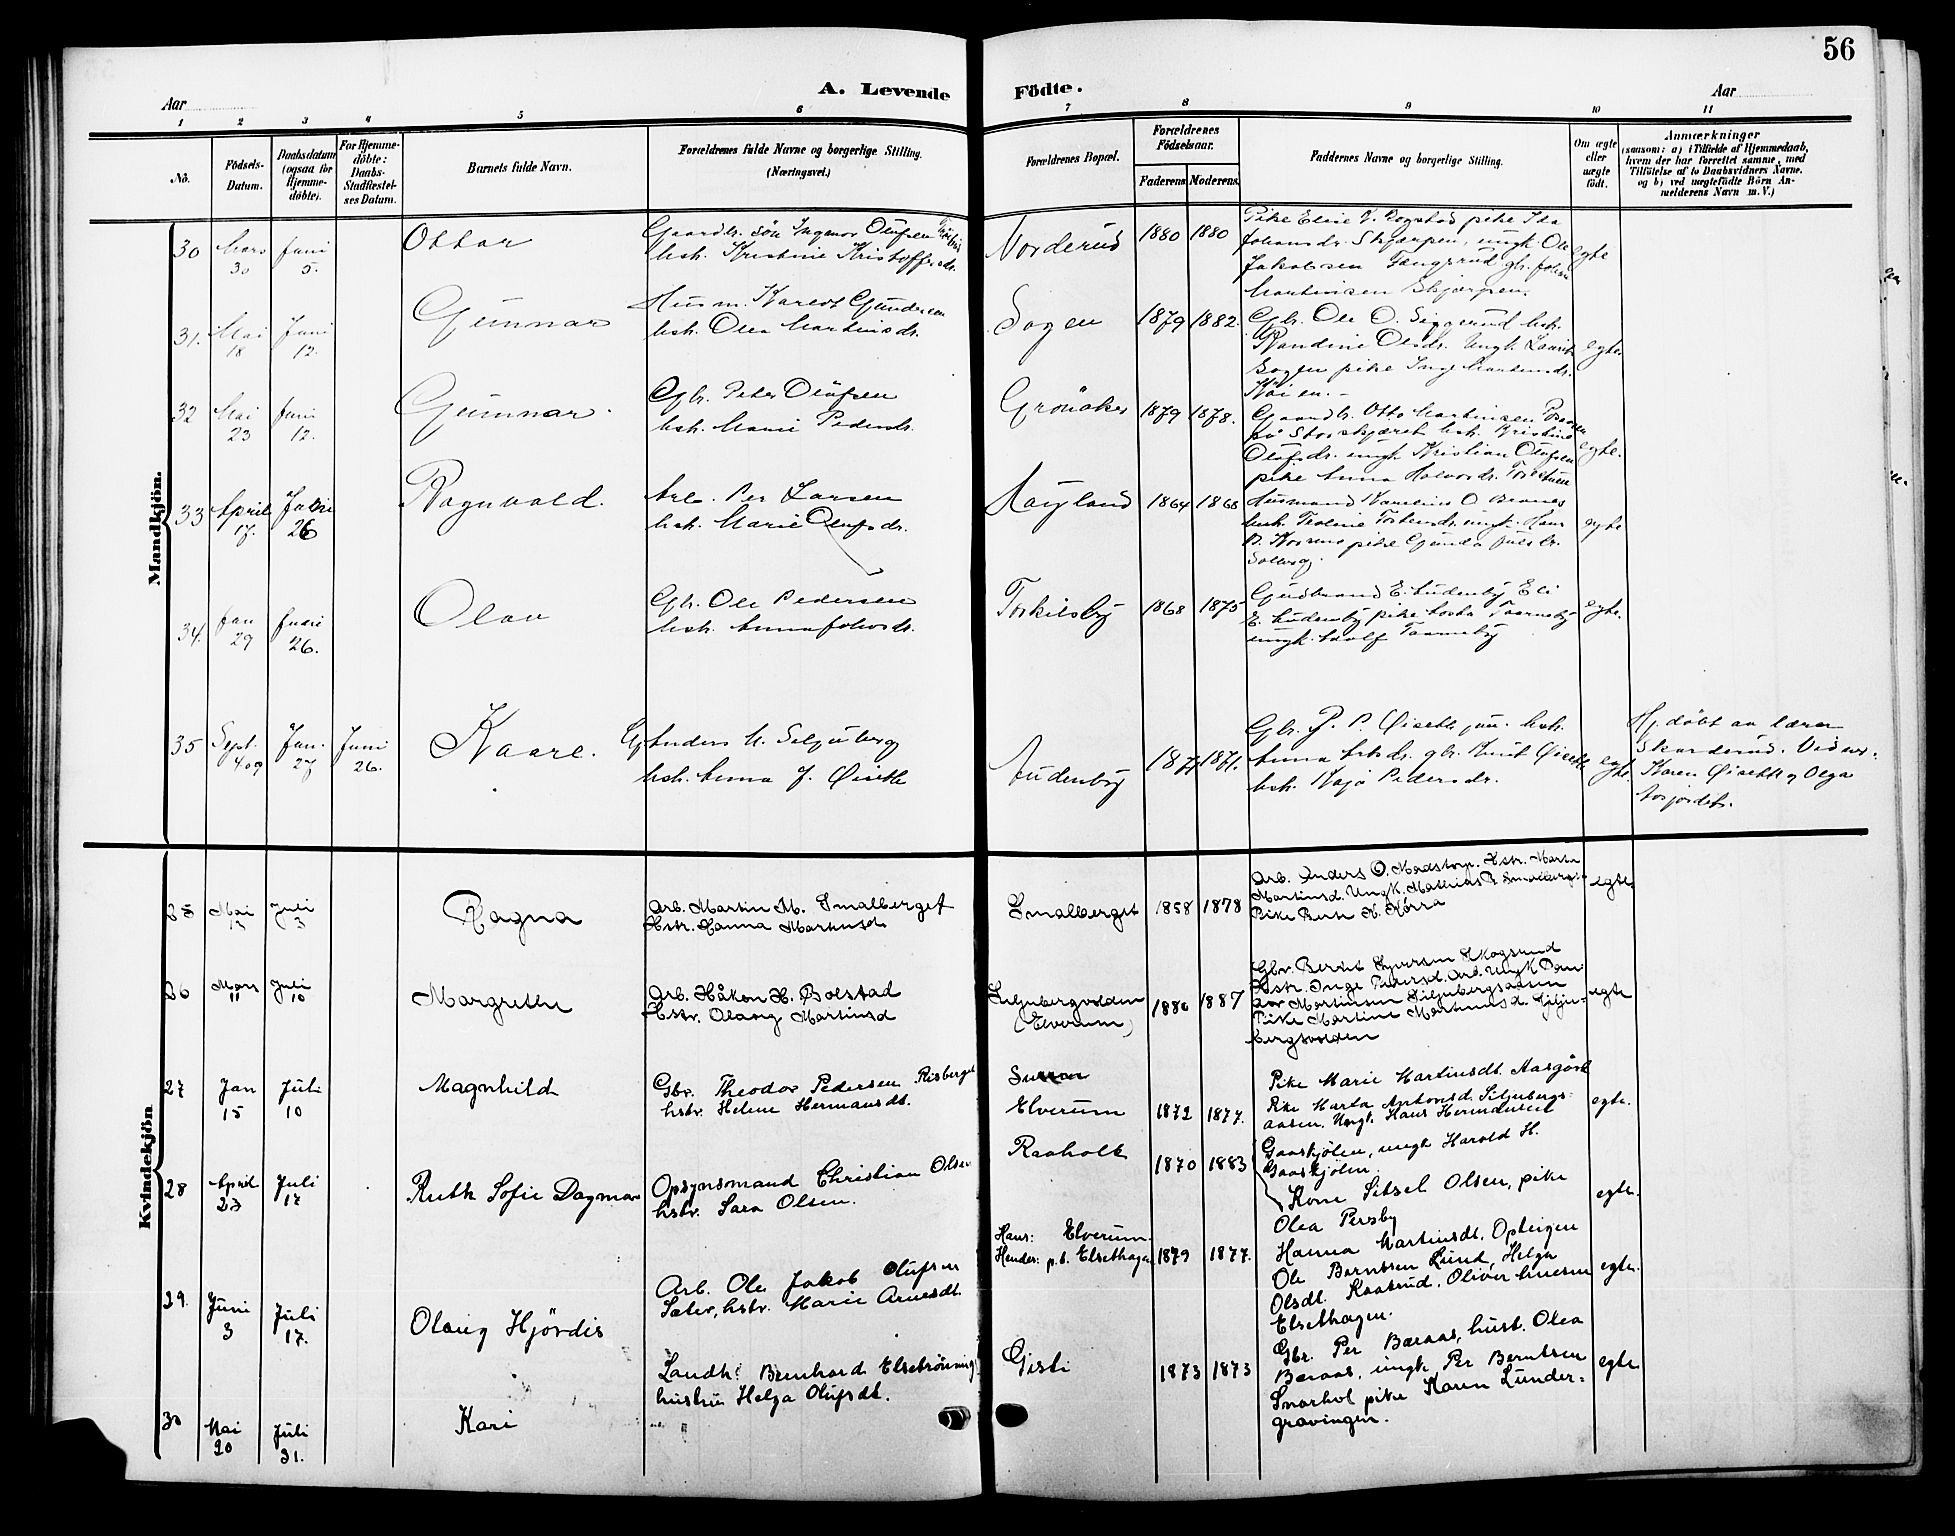 56
A. Levende Födte.
Aar
Aar
1 2 3 4 5 6 7 8 9 10 11
No.
Födsels-
Datum.
Daabsdatum
(ogsaa for
Hjemme-
döbte).
For Hjemme-
döbte:
Daabs-
Stadfæstel-
ses Datum.
Barnets fulde Navn.
Forældrenes fulde Navne og borgerlige Stilling.
(Næringsvei.)
Forældrenes Bopæl.
Forældrenes
Fødselsaar.
Faderens
Moderens.
Faddernes Navne og borgerlige Stilling.
Om ægte
eller
uægte
født.
Anmærkninger
(saasom: a) i Tilfælde af Hjemmedaab,
hvem der har forrettet samme, med
Tilföielse af to Daabsvidners Navne.
og b) ved uægtefödte Börn An-
melderens Navn m. V.)
Mandkjön.
30
Mars
30
Juni
5.
Ottar
Gaardbr. sön Ingvar Olufsen
hst. Kristine Kristoffersdr.
Norderud
1880 1880
Pike Elise Bogstad pike Ida
Johansdr. Skjærpen, ungk. Ole
Jakobsen Tangrud gbr. Johan
Martinsen Skjærpen.
egte
31.
Mai
18
Juni
12.
Gunnar
Husm. Karelt Gundersen
hst. Olea Martinsdr.
Sogen
1879 1882.
Gbr. Ole O. Siggerud hst.
Randine Olsdr. Ungk. Laurits
Sogen pike Inga Martinsdr.
Köien.
egte.
32
Mai
23
Juni
12.
Gunnar.
Gbr. Peter Olufsen
hst. Marie Pedersdr.
Grönåker
1879 1878.
Gaardbr. Otto Martinsen
på Storskjæret hst. Kristine
Olufsdr. ungk Kristian Olufsen
pike Anna Halvorsdr.
egte.
33
April
17.
Juni
26
Ragnvald.
Arb. Per Larsen
hst. Marie Olufsdr.
Haugland
1864 1868
Husmand Kornelius O. Branes
hst. Teoline Torstensdr. ungk. Hans
B. pike Gunda Julsdr.
Solberg.
egte
34.
Jan
29
Juni
26.
Olav
Gbr. Ole Pedersen
hst. Anna Johvsdr.
Torkilsby
1868 1875
Gudbrand E. Audenby Eli
E. Audenby pike Taarneby
ungk. Adolf Taarneby
egte.
35
Sept.
4 09
Jan.
27
Juni
26.
Kaare.
Gbr Anders M. Seljuberg
hst. Anna J. Øiseth
Audenby
1871 1871.
Gbr. P. P. Øiseth jun. hst.
Anna gbr. Knut Øiseth
hst. Kaja Pedersdr.
egte.
Hj. döbt av lærer
Skarderud. Vidner:
Karen Øiseth og Olga
Norjordet.
Kvindekjön
25
Mai
12
Juli
3
Ragna
Arb. Martin M. Smalberget
Hstr. Hanna Martinsd
Smalberget
1858 1878
Arb. Anders O. Madstorp. Hstr. Marte
Martinsd. Ungk. Mathias B Smalberget
Pike Berte M. Kørra
egte
26
Mars
11
Juli
10
Margrethe
Arb. Håkon H. Bolstad
Hstr. Olaug Martinsd
Siljubergvolden
(Elverum)
1880 1887
Gbr. Bernt Syversen Skogsrud
Hstr. Inge Pedersd. Arb. Ungk Dani
Martinsen Siljubergsaasen
Pike Martine Martinusd. Silju-
bergsvolden
egte
27
Jan
15
Juli
10
Magnhild
Gbr. Theodor Pedersen Risberget
hstr. Helene Hermansdt.
Elverum
1872 1877.
Pike Marie Martinsdt. Aasgård
Pike Marta Antonsd. Siljubergs-
aasen. Ungk. Hans
Gaaskjölen, ungk Harald H.
Gaaskjölen.
egte.
28
April
23
Juli
17
Ruth Sofie Dagmar
Opsynsmand Christian Olsen
hstr. Sara Olsen.
Raaholt
1870 1883
Kone Sitsel Olsen, pike
Olea Persby
egte.
29.
Juni
3
Juli
17.
Olaug Hjördis
Arb. Ole Jakob Olufsen
Sæter, hstr. Marie Arnesdt.
Hans: Elverum.
Hendes: p.t. Elsethagen
1879 1877.
Hanna Martinsdt. Opteigen
Ole Berntsen Lund, Helga
Olsdt. Kaatsrud. Oliver
Elsethagen.
egte.
30
Mai
20
Juli
31.
Kari
Landh. Bernhard Elsebrönning
hustru Helga Olufsdt.
Gisti
1873 1873
Gbr. Per Bæraas, hust. Olea
Bæraas, ungk. Per Berntsen
Snarhol pike Karen Lunder-
gravingen.
egte